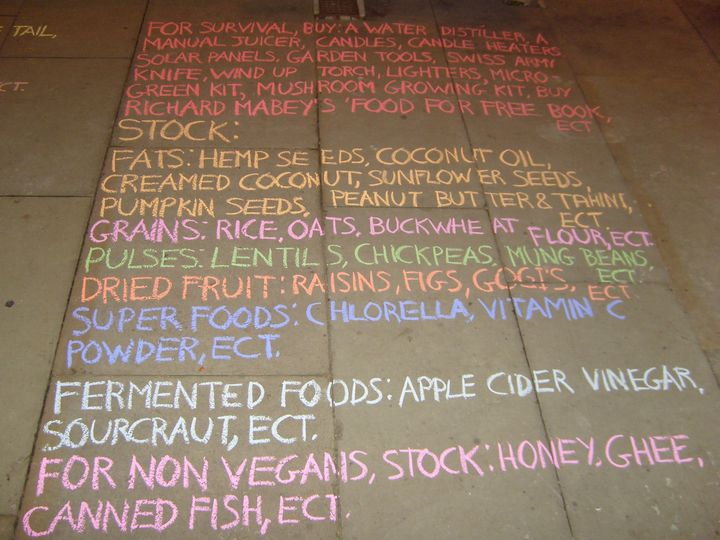 TAIL,
CT.
FOR SURVIVAL, BUY: A WATER DISTILLER, A
MANUAL JUICER, CANDLES, CANDLE HEATERS
SOLAR PANELS, GARDEN TOOLS, SWISS ARMY
KNIFE, WIND UP TORCH, LIGHTERS, MICRO-
GREEN KIT, MUSHROOM GROWING KIT. BUY
RICHARD MABEY'S 'FOOD FOR FREE BOOK,
ECT
STOCK:
FATS: HEMP SEEDS, COCONUT OIL,
CREAMED COCONUT, SUNFLOWER SEEDS,
PUMPKIN SEEDS, PEANUT BUTTER & TAHINI,
ECT.
GRAINS: RICE, OATS, BUCKWHEAT FLOUR, ECT.
PULSES: LENTILS, CHICKPEAS, MUNG BEANS,
ECT
DRIED FRUIT: RAISINS, FIGS, GOGI'S, ECT
SUPER FOODS: CHLORELLA, VITAMIN C
POWDER, ECT.
FERMENTED FOODS: APPLE CIDER VINEGAR,
SOURCRAUT, ECT.
FOR NON VEGANS, STOCK: HONEY, GHEE,
CANNED FISH, ECT.